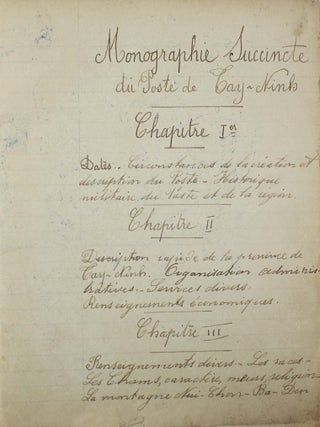 Monographie Succincte
du Poste de Tay-Ninh
Chapitre Ier
Dates.. Circonstances de la création et
description du Poste - Historique
militaire du Poste et de la région.
Chapitre II
Description rapide de la province de
Tay-Ninh. Organisation adminis-
tratives. - Services divers.
Renseignements économiques.
Chapitre III
Renseignements divers. - Les races -
Les Chams, caractère, mœurs, religion
La montagne Nui-Chon-Ba-Den